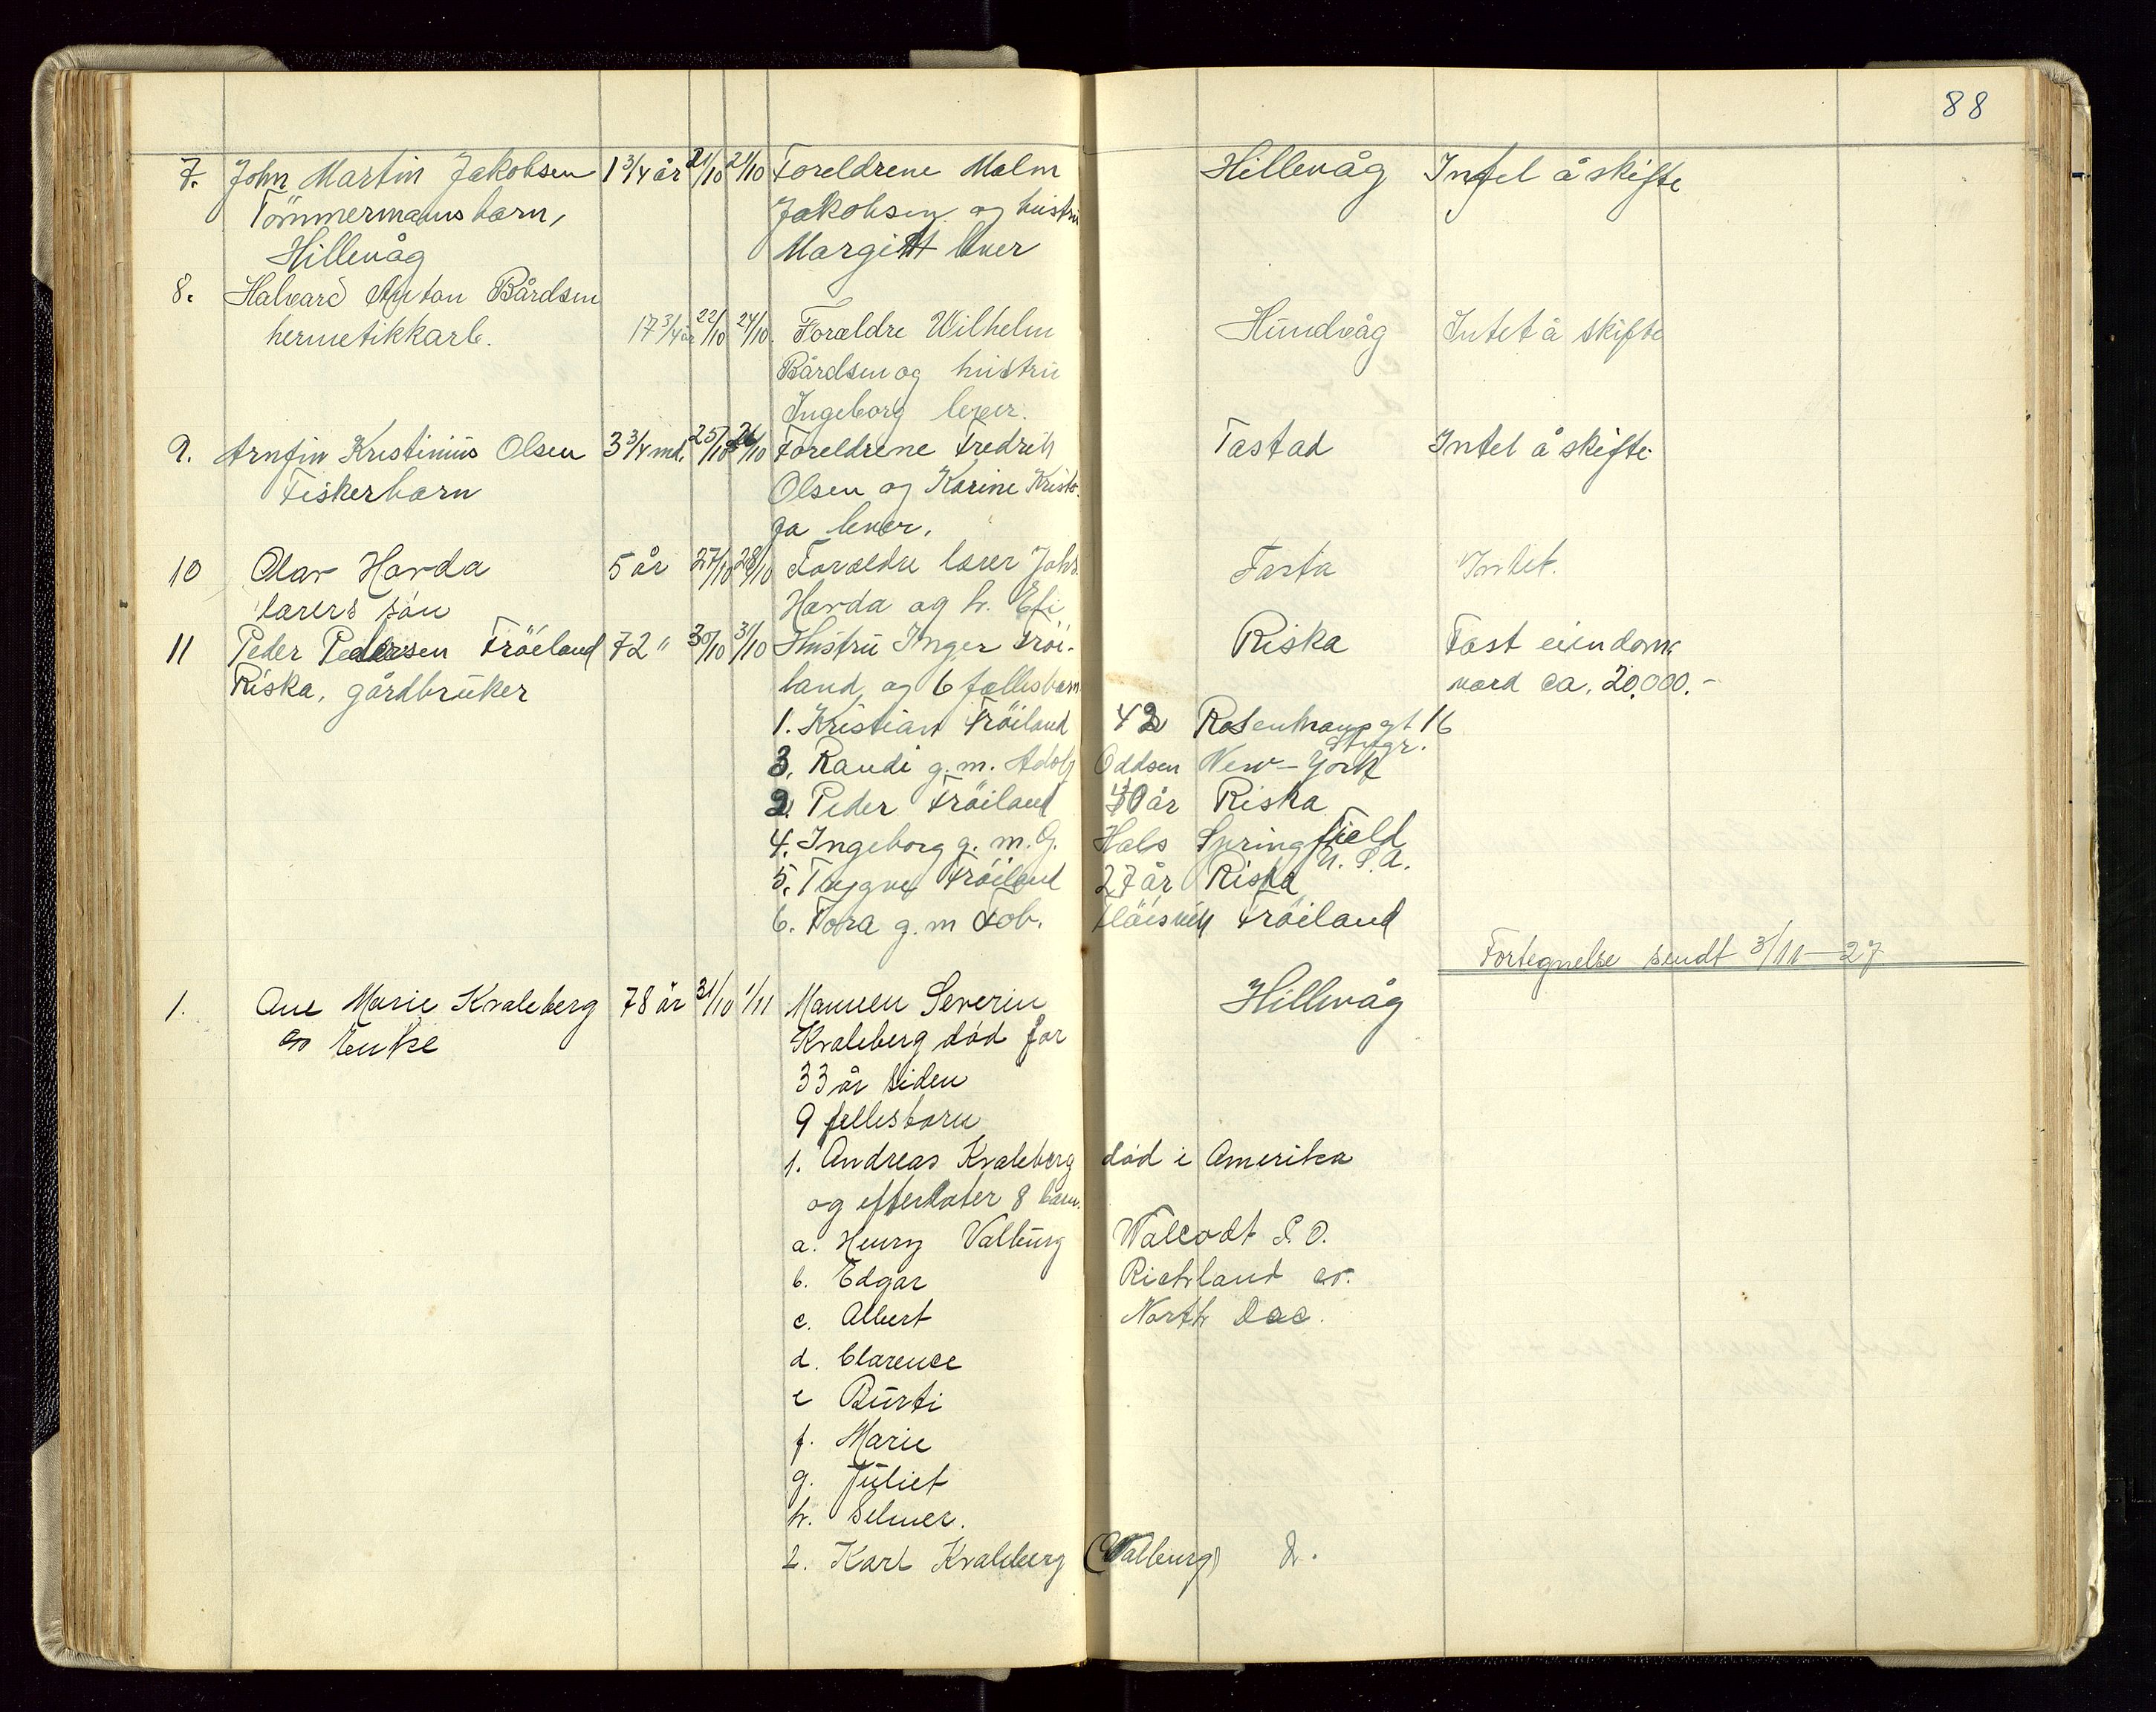 88
7. John Martin Jakobsen 1 3/4 år 21/10 24/10 Foreldrene Malm Hillevåg Intet å skifte
Tömmermannsbarn, Jakobsen og hustru
Hillevåg Margitt lever
8. Halvard Anton Bårdsen
hermetikkarb. 17 3/4 år 22/10 24/10. Forældre Wilhelm Hundvåg Intet å skifte
Bårdsen og hustru
Ingeborg lever.
9. Arnfin Kristinius Olsen 3 3/4 md. 25/10 26/10 Foreldrene Fredrik Tastad Intet å skifte
Fiskerbarn Olsen og Karine Kristo-
fa lever.
10 Olav Harda 5 år 27/10 28/10 Forældre lærer Johs. Tasta Intet.
lærers sön Harda og h. Efi
11 Peder Pedersen Fröiland 72 " 30/10 31/10 Hustru Inger Fröi- Riska Fast eiendom
Riska, gårdbruker land, og 6 fællesbarn værd ca. 20.000.-
1. Kristian Fröiland 42 gt 16
3. Randi g. m. Adolf Oddsen New-York
2. Peder Fröiland 40 år Riska
4. Ingeborg g. m. G. Hals Springfield
U. S. A.
5. Trygve Fröiland 27 år Riska
6. Tora g. m Tob. Fröiland
Fortegnelse sendt 3/11-27
1. Ane Marie Kvaleberg 78 år 31/10 1/11 Mannen Severin Hillevåg
Enke Kvaleberg död for
33 år siden
9 fellesbarn
1. Andreas Kvaleberg död i Amerika
og efterlater 8 barn.
a. Henry Valburg Walcodt S. D.
b. Edgar Richland co.
c. Albert North Dac.
d. Clarence
e Burti
f. Marie
g. Juliet
h. Selmer.
2. Karl Kvaleberg (Walburg) d.